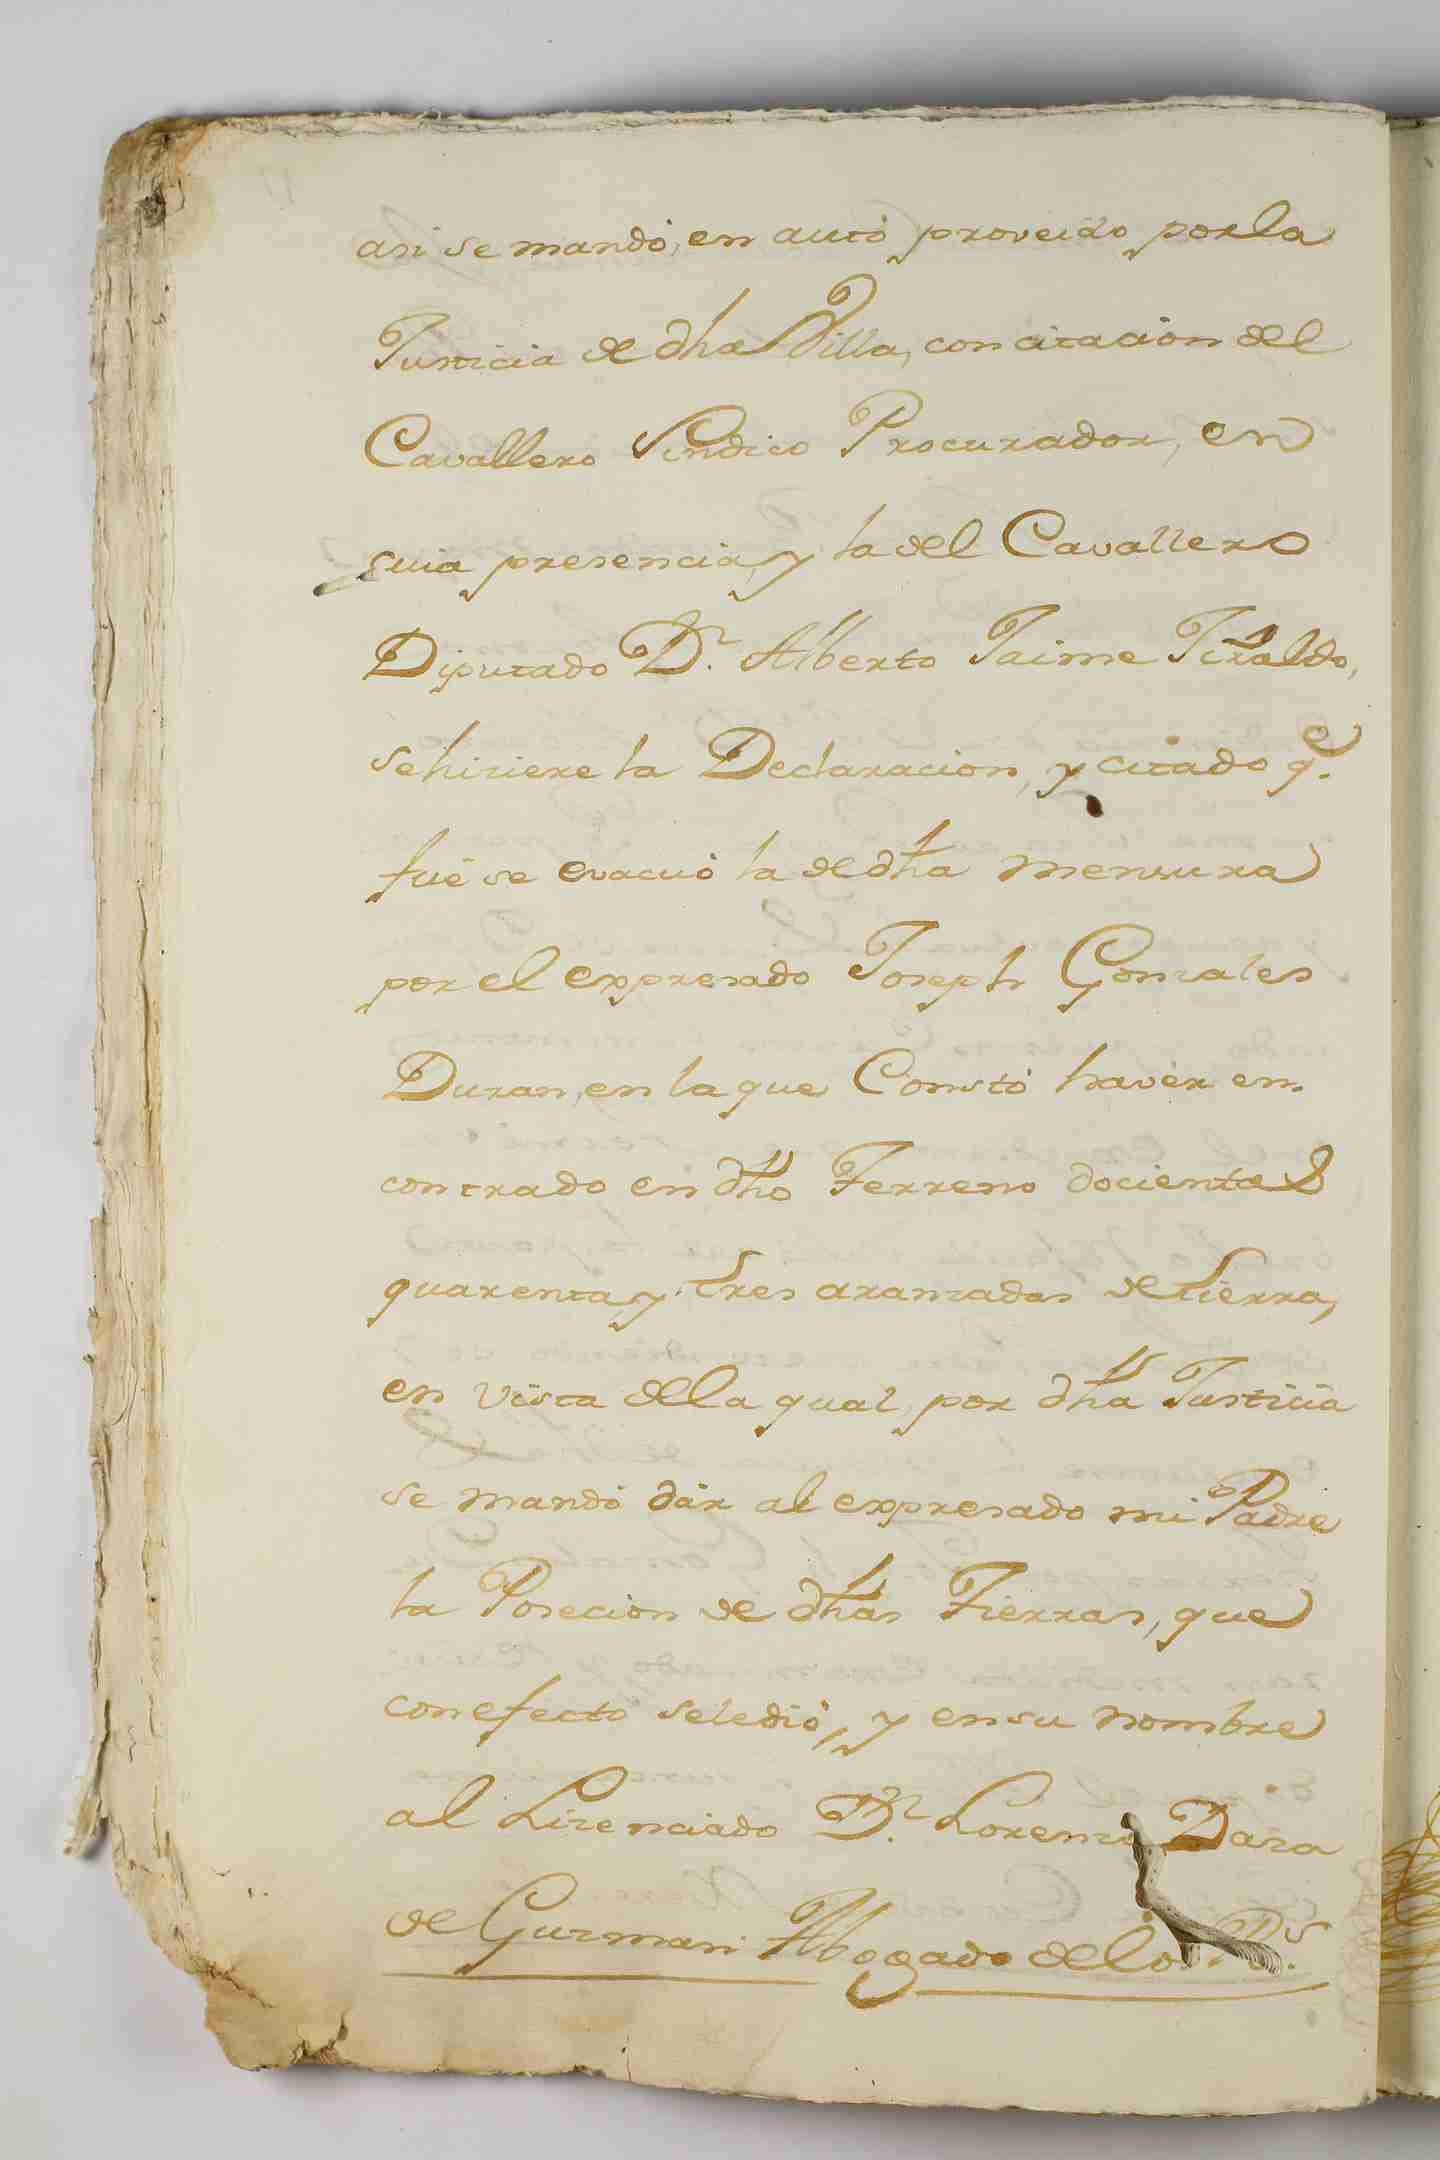 asi se mandó, en autó proveido por la
Justicia de dha Villa, con citacion del
Cavallero Sindico Procurador, en
suia presencia, y la del Cavallero
Diputado Dn. Alberto Jaime Tiraldo,
se hiziere la Declaracion, y citado qe.
fué se evacuó la de dha mensura
por el expresado Joseph Gonzales
Duran, en la que Constó havér en-
contrado en dho Terreno docientas
quarenta, y tres aranzadas de tierra,
en vista de la qual, por dha Justicia
se mandó dár al expresado mi Padre
la Posecion de dhas Tierras, que
con efecto se le dió, y en su nombre
al Lizenciado Dn. Lorenzo Daza
de Guzman Abogado de los Rs.